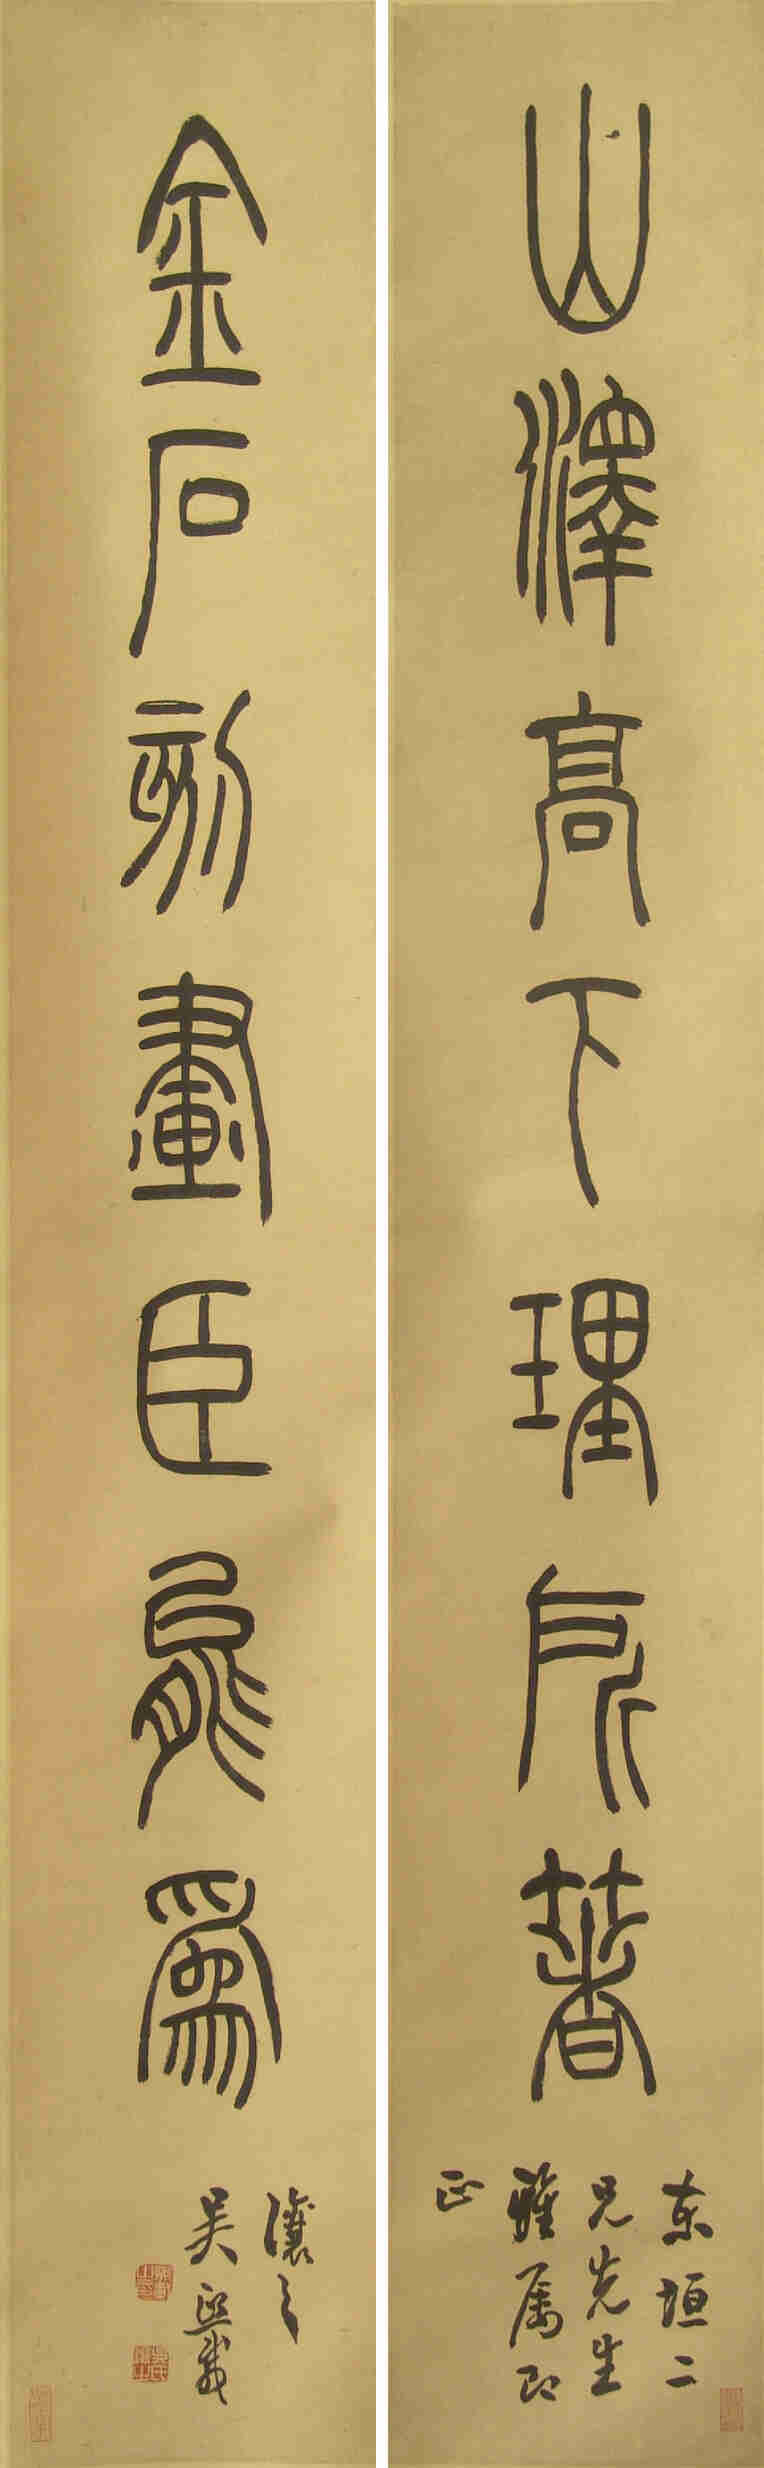 山澤高下理所著
東垣二
兄先生
雅属即
正
金石刻畫臣能爲
讓之
吳熙載